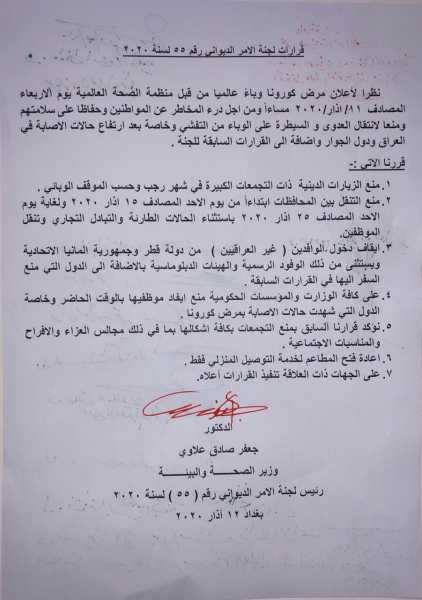 قرارات لجنة الامر الديواني رقم ٥٥ لسنة ٢٠٢٠
نظرا لأعلان مرض كورونا وباء عالميا من قبل منظمة الصحة العالمية يوم الاربعاء
المصادف ١١/ اذار/٢٠٢٠ مساءاً ومن اجل درء المخاطر عن المواطنين وحفاظا على سلامتهم
ومنعا لانتقال العدوى و السيطرة على الوباء من التفشي وخاصة بعد ارتفاع حالات الاصابة في
العراق ودول الجوار واضافة الى القرارات السابقة للجنة .
قررنا الاتي :-
١. منع الزيارات الدينية ذات التجمعات الكبيرة في شهر رجب وحسب الموقف الوبائي .
٢. منع التنقل بين المحافظات ابتداءاً من يوم الاحد المصادف ١٥ اذار ٢٠٢٠ ولغاية يوم
الاحد المصادف ٢٥ اذار ٢٠٢٠ باستثناء الحالات الطارئة والتبادل التجاري وتنقل
الموظفين.
٣. ايقاف دخول الوافدين ( غير العراقيين ) من دولة قطر وجمهورية المانيا الاتحادية
ويستثنى من ذلك الوفود الرسمية والهيئات الدبلوماسية بالاضافة الى الدول التي منع
السفر اليها في القرارات السابقة .
٤. على كافة الوزارت والمؤسسات الحكومية منع ايفاد موظفيها بالوقت الحاضر وخاصة
الدول التي شهدت حالات الاصابة بمرض كورونا .
٥. نؤكد قرارنا السابق بمنع التجمعات بكافة اشكالها بما في ذلك مجالس العزاء والافراح
والمناسبات الاجتماعية .
٦. اعادة فتح المطاعم لخدمة التوصيل المنزلي فقط .
٧. على الجهات ذات العلاقة تنفيذ القرارات أعلاه.
الدكتور
جعفر صادق علاوي
وزير الصحـــة والبيئـــة
رئيس لجنة الامر الديواني رقم ( ٥٥ ) لسنة ٢٠٢٠
بغداد ١٢ أذار ٢٠٢٠